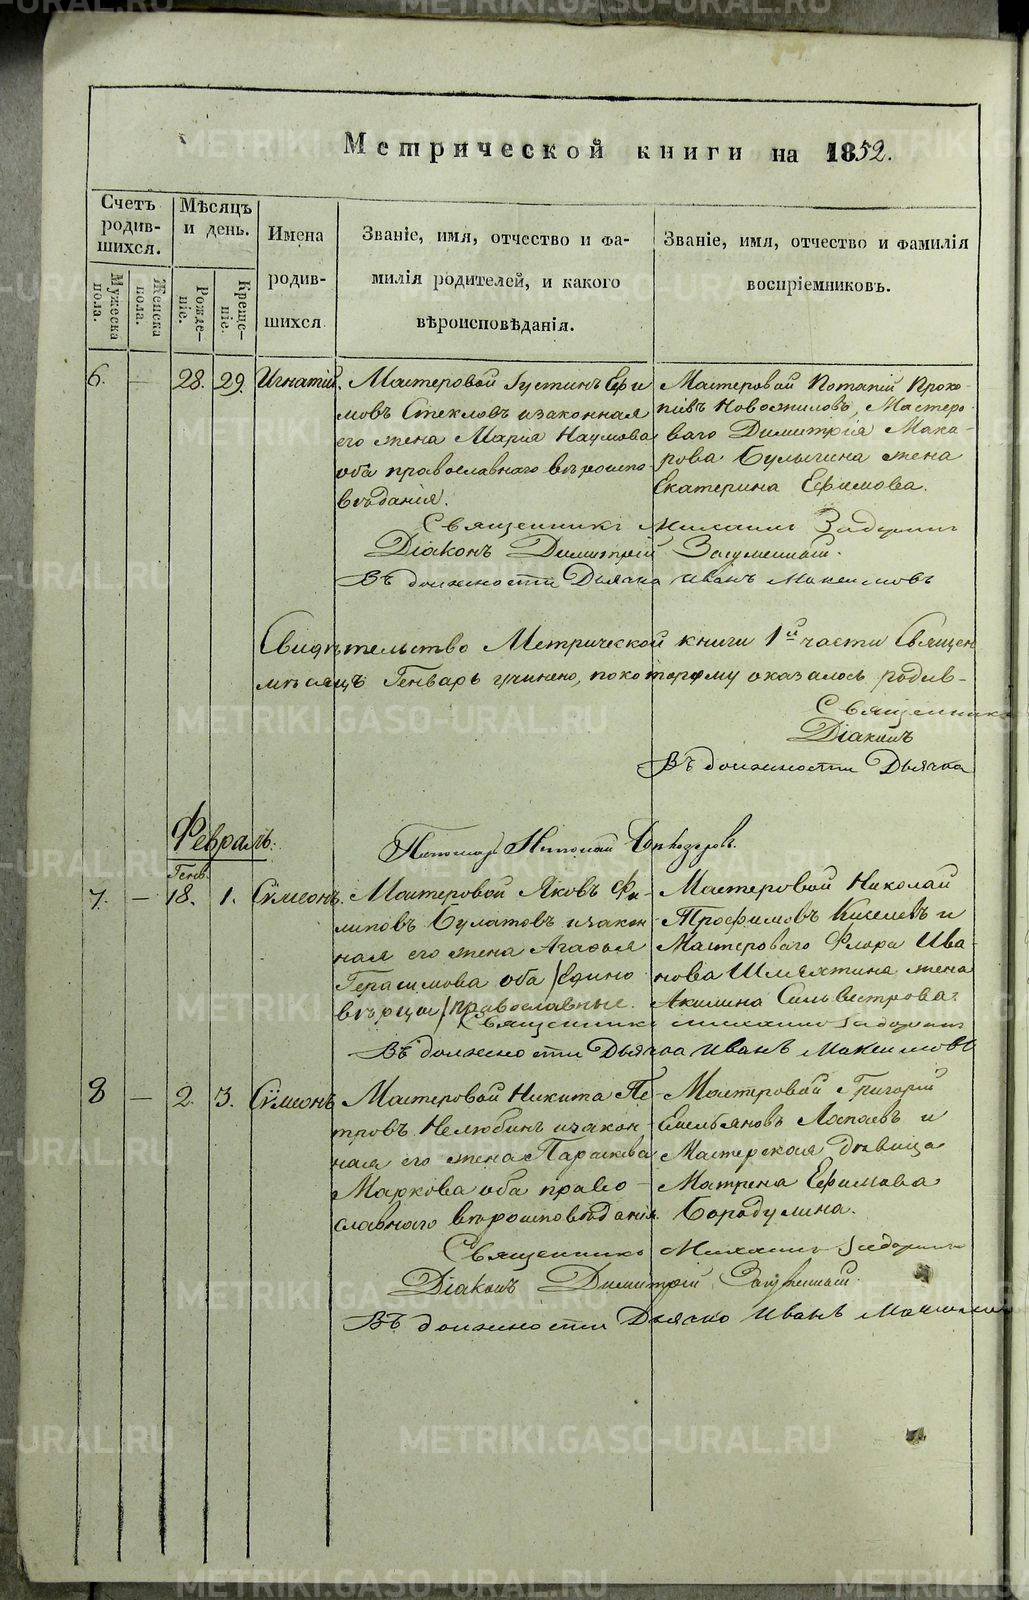 Метрической книги на 1852.
Счетъ родив-шихся.
Мужеска пола.
Женска пола.
Мѣсяцъ и день.
Рожде-ніе.
Креще-ніе.
Имена родив-шихся
Званіе, имя, отчество и фа-
милія родителей, и какого
вѣроисповѣданія.
Званіе, имя, отчество и фамилія
воспріемниковъ.
6. — 28. 29. Игнатій.
Мастеровой Густинъ Ефи
мовъ Стекловъ изаконная
его жена Марія Наумова
оба православнаго вѣроиспо
вѣданія.
Мастеровой Потапій Проко-
піевъ Новожиловъ, Мастеро
ваго Димитрія Мака-
рова Булыгина жена
Екатерина Ефимова.
Священникъ Михаилъ Задоринъ
Діаконъ Димитрій Загуменный.
Въ должности Дьячка Иванъ Максимовъ
Свидѣтельство Метрической книги 1й части Священ
мѣсяцъ Генварь учинено, по которому оказалось родив-
Священникъ
Діаконъ
Въ должности Дьячка
Февраль.
Пономарь Николай
Генв.
7. — 18. 1. Сѵмеонъ.
Мастеровой Яковъ Фи-
липовъ Булатовъ изакон
ная его жена Агафья
Герасимова оба /едино
вѣрцы/ православные.
Мастеровой Николай
Трофимовъ Киселевъ и
Мастероваго Флора Ива-
нова Шляхтина жена
Акилина Сильвестрова.
Священникъ Михаилъ Задоринъ
Въ должности Дьячка Иванъ Максимовъ
8 — 2. 3. Сѵмеонъ
Мастеровой Никита Пе-
тровъ Нелюбинъ изакон
ная его жена Параскева
Маркова оба право-
славнаго вѣроисповѣданія.
Мастеровой Григорій
Емельяновъ Лопаевъ и
Мастерская дѣвица
Матрена Ефимова
Бородулина.
Священникъ Михаилъ Задоринъ
Діаконъ Димитрій Загуменный.
Въ должности Дьячка Иванъ Максимовъ
METRIKI.GASO-URAL.RU